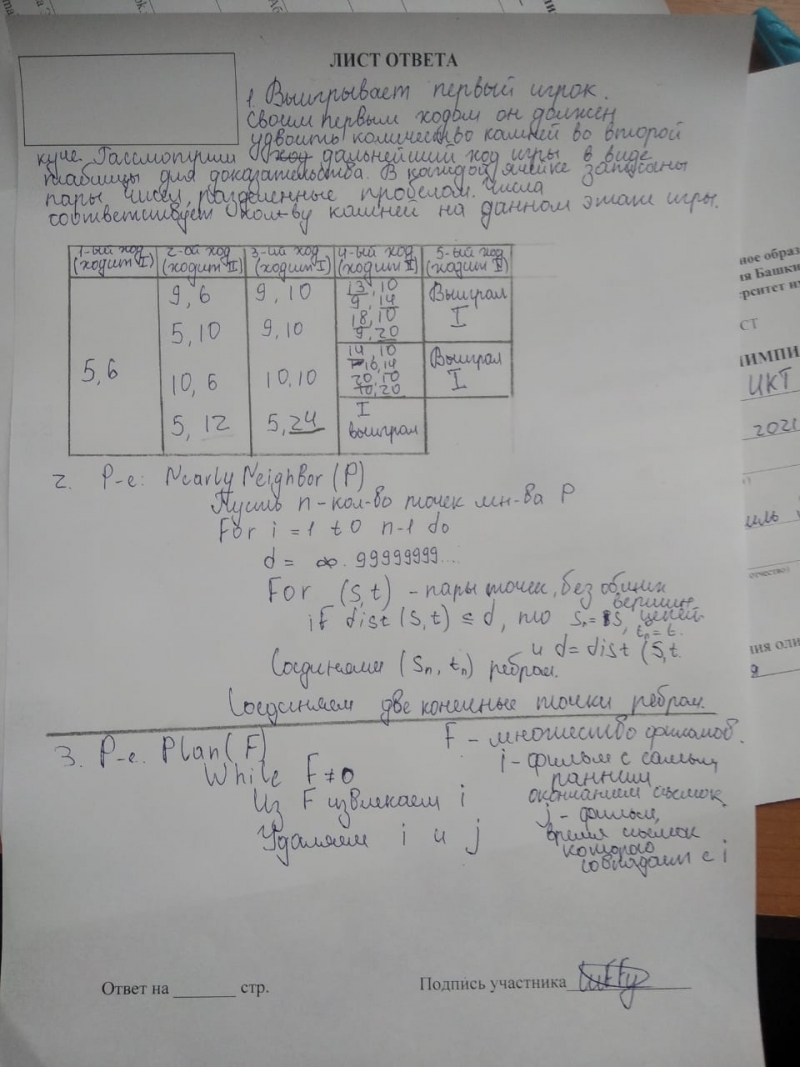 ЛИСТ ОТВЕТА
1. Выигрывает первый игрок.
Своим первым ходом он должен
удвоить количество камней во второй
куче. Рассмотрим дальнейший ход игры в виде
таблицы для доказательства. В каждой ячейке записаны
пары чисел, разделенные пробелом. Числа
соответствует кол-ву камней на данном этапе игры.
1-ый ход (ходит I) 2-ой ход (ходит II) 3-ий ход (ходит I) 4-ый ход (ходит II) 5-ый ход (ходит I)
5,6
9,6 9,10 13,10
9,14 Выиграл I
5,10 9,10 18,10
9,20
10,6 10,10 14,10
16,14
20,10
10,20 Выиграл I
5,12 5,24 I выиграл
2. Р-е: Nearly Neighbor (P)
Пусть n - кол-во точек мн-ва P
For i = 1 to n-1 do
d = ∞. 99999999...
For (s,t) - пары точек, без общих
вершин
if dist (s,t) ≤ d, то Sn = S, цепей
tn = t.
и d = dist (s,t
Соединяем (Sn, tn) ребром.
Соединяем две конечные точки ребром.
3. Р-е. Plan(F) F - множество фильмов.
While F ≠ 0 i - фильм с самым
ранним
Из F извлекаем i окончанием съемок
Удаляем i и j j - фильм,
время съемок
которого
совпадает с i
Ответ на ______ стр. Подпись участника
ное образ
ия Башки
ерситет им
СТ
ИМПИ
ИКТ
2021
отчество)
ния оли